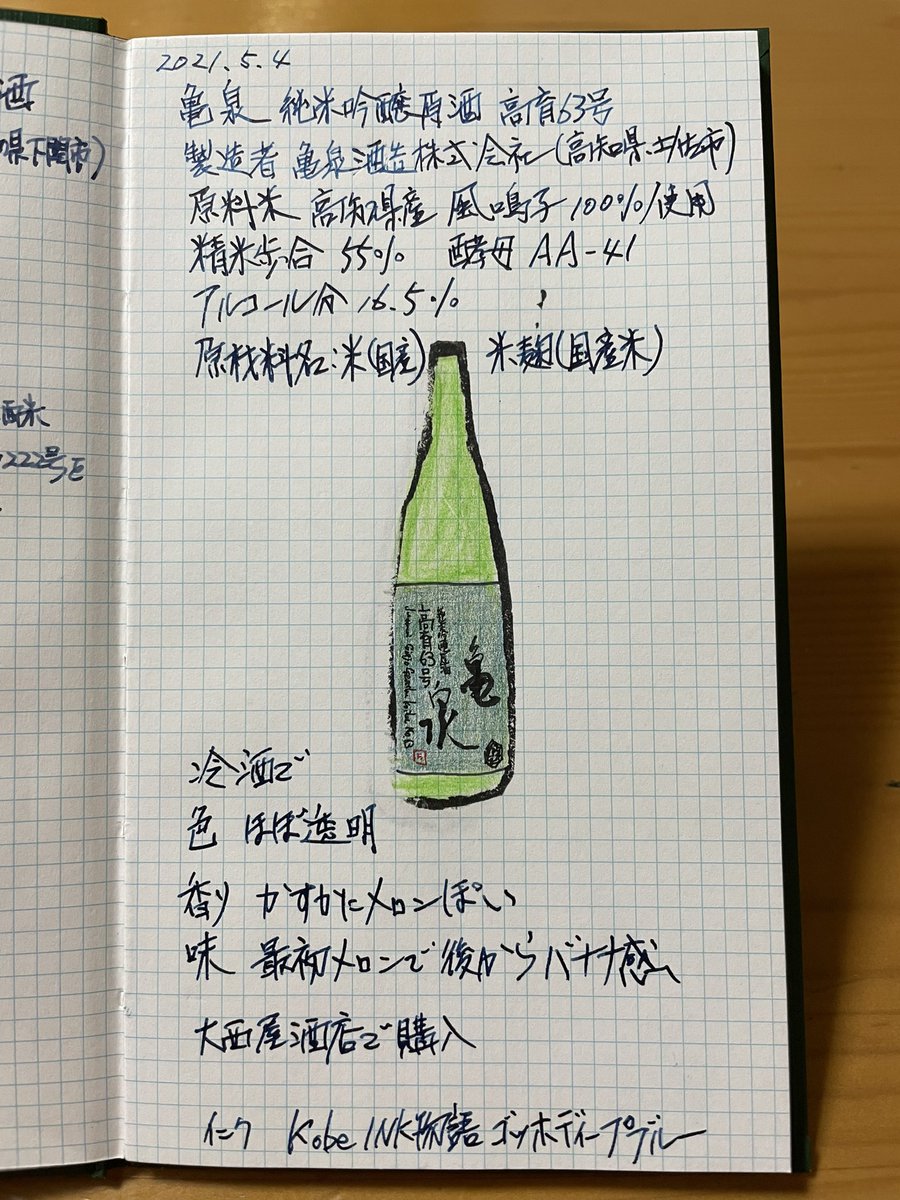 酒
県下関市)
酵米
222号E
2021.5.4
亀泉 純米吟醸原酒 高育63号
製造者 亀泉酒造株式会社(高知県土佐市)
原料米 高知県産 風鳴子100%使用
精米歩合 55% 酵母 AA-41
アルコール分 16.5%
原材料名:米(国産) 米麹(国産米)
亀泉
高育63号
冷酒で
色 ほぼ透明
香り かすかにメロンぽい
味 最初メロンで後からバナナ感
大西屋酒店で購入
インク Kobe INK物語 ゴッホディープブルー